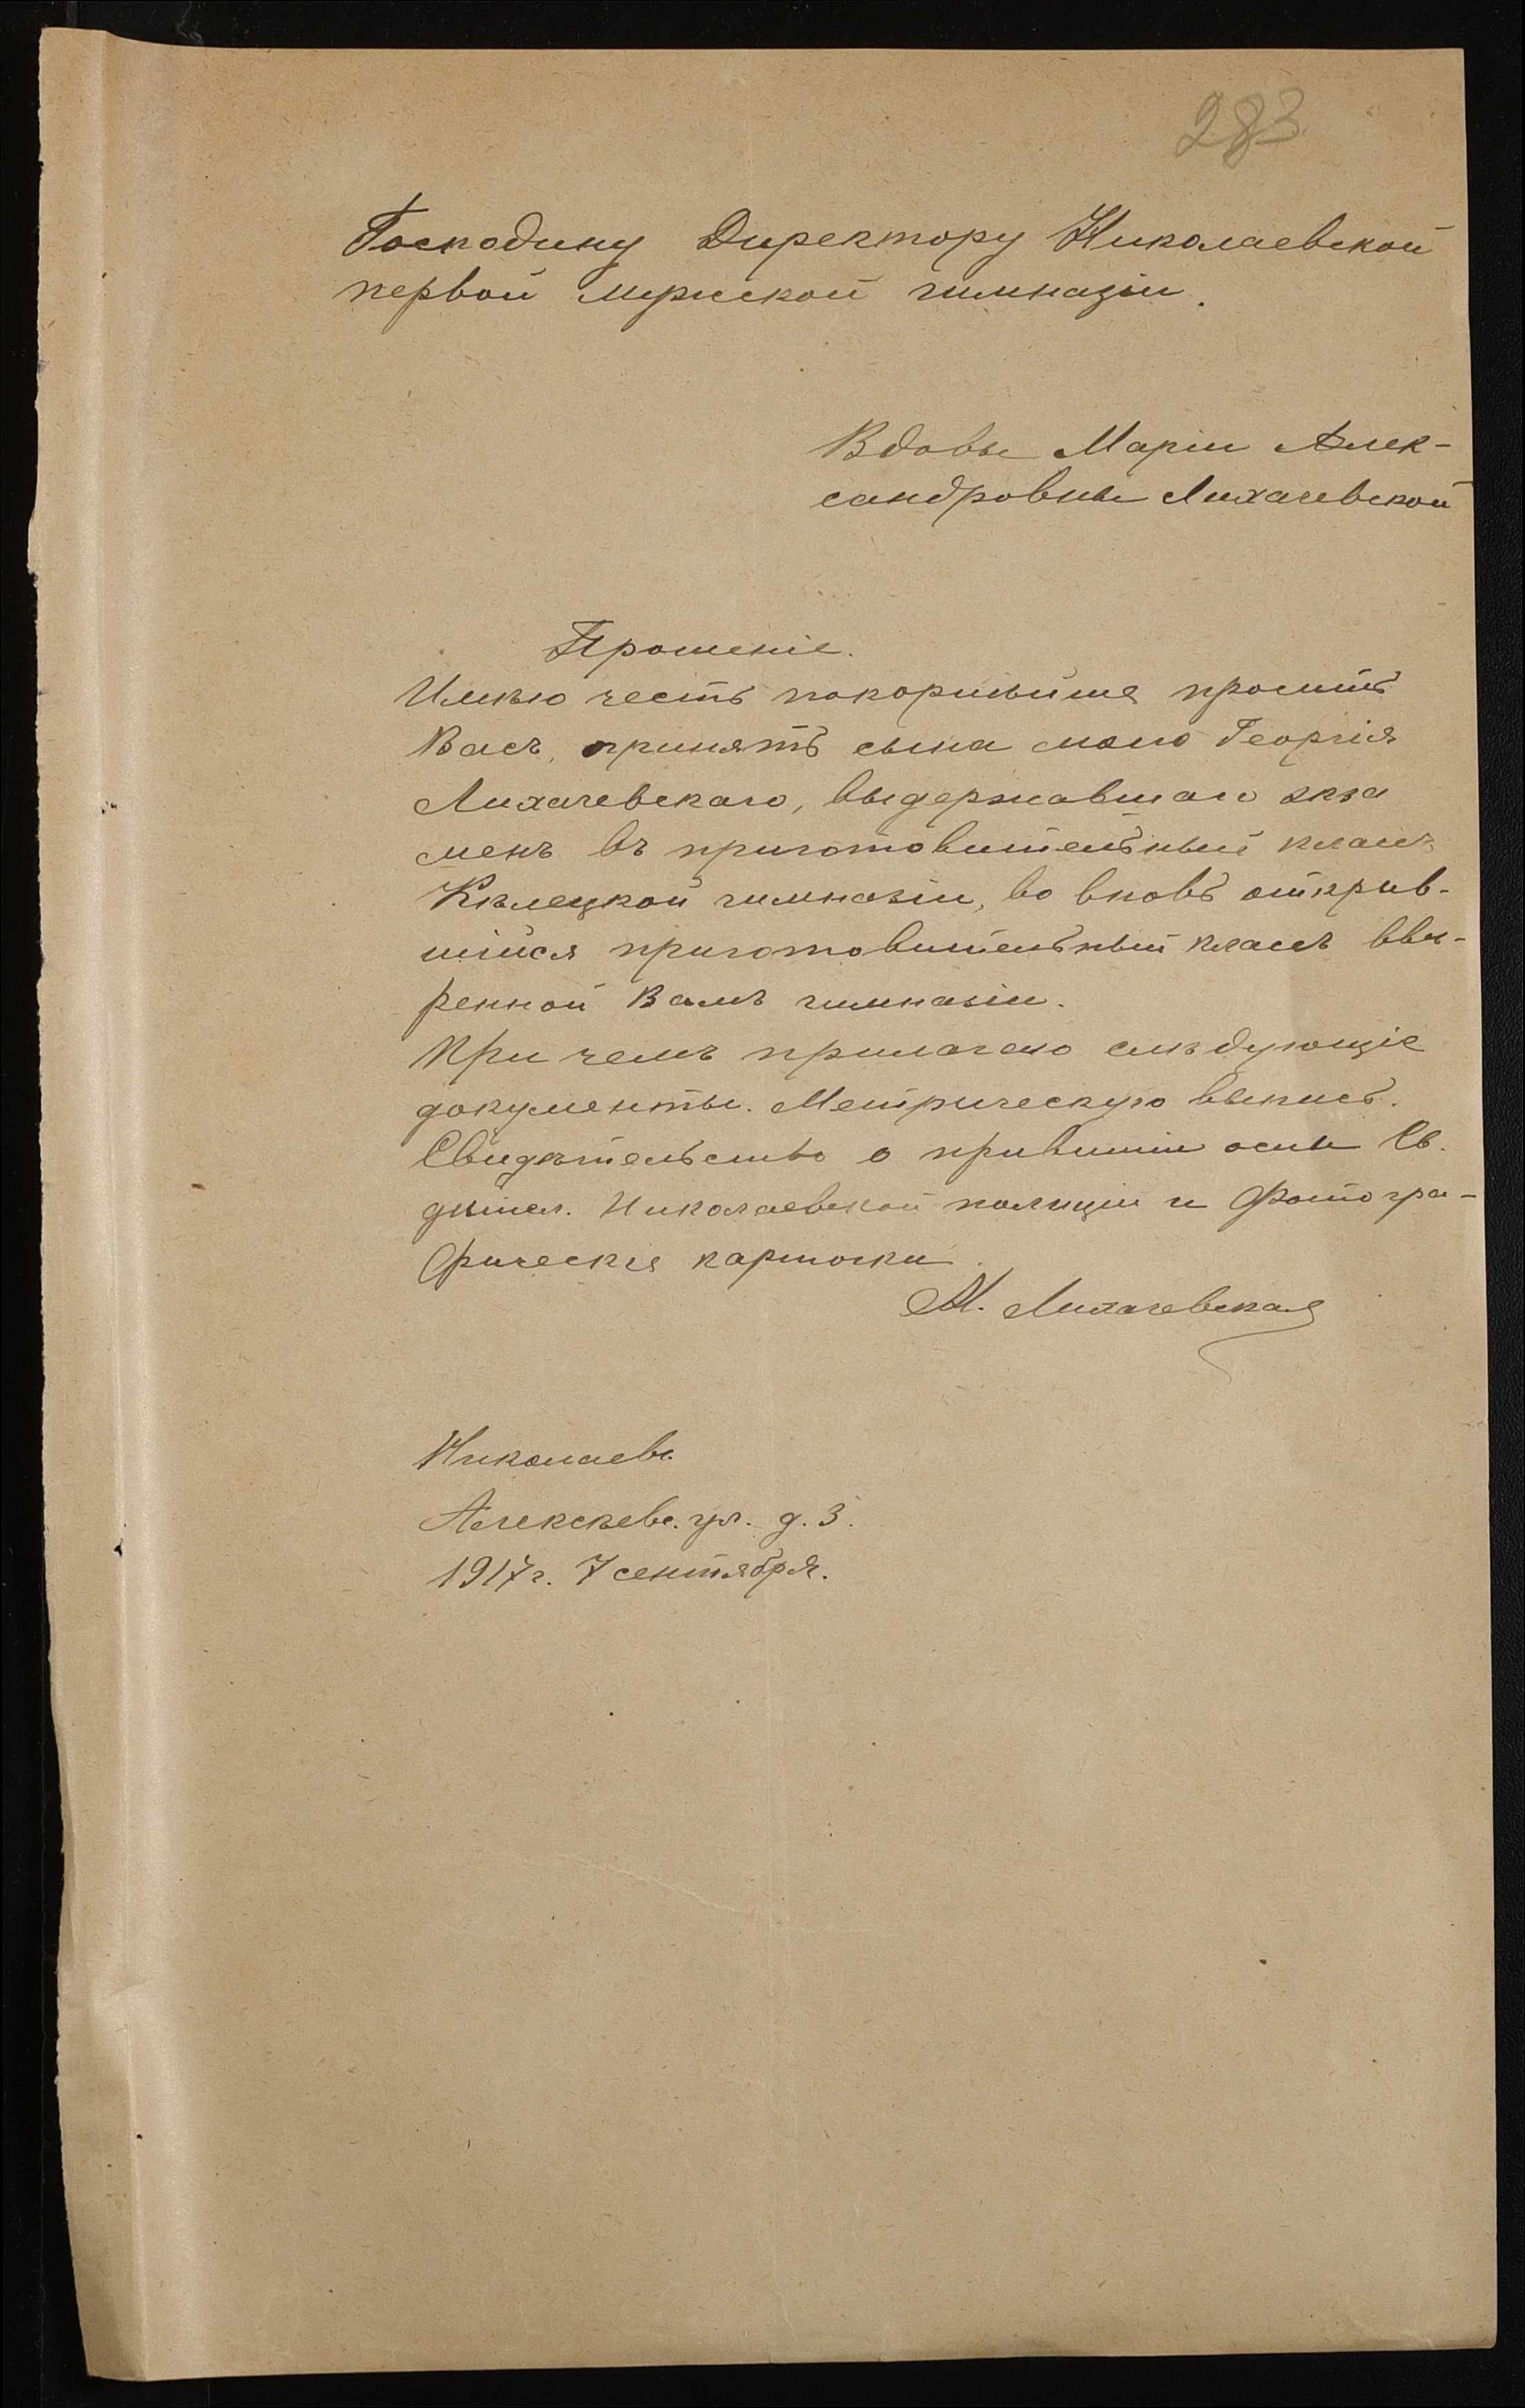 283
Господину Директору Николаевской
первой мужской гимназіи.
Вдовы Маріи Алек-
сандровны Лихачевской
Прошеніе.
Имѣю честь покорнѣйше просить
Васъ, принять сына моего Георгія
Лихачевскаго, выдержавшаго экза
менъ въ приготовительный классъ
Кѣлецкой гимназіи, во вновь открыв-
шійся приготовительный классъ ввѣ-
ренной Вамъ гимназіи.
При чемъ прилагаю слѣдующіе
документы. Метрическую выпись.
Свидѣтельство о привитіи оспы Св.
дѣтел. Николаевской полиціи и Фотогра-
фическія карточки.
М. Лихачевская
Николаевъ.
Алексѣевс. ул. д. 3.
1917 г. 7 сентября.